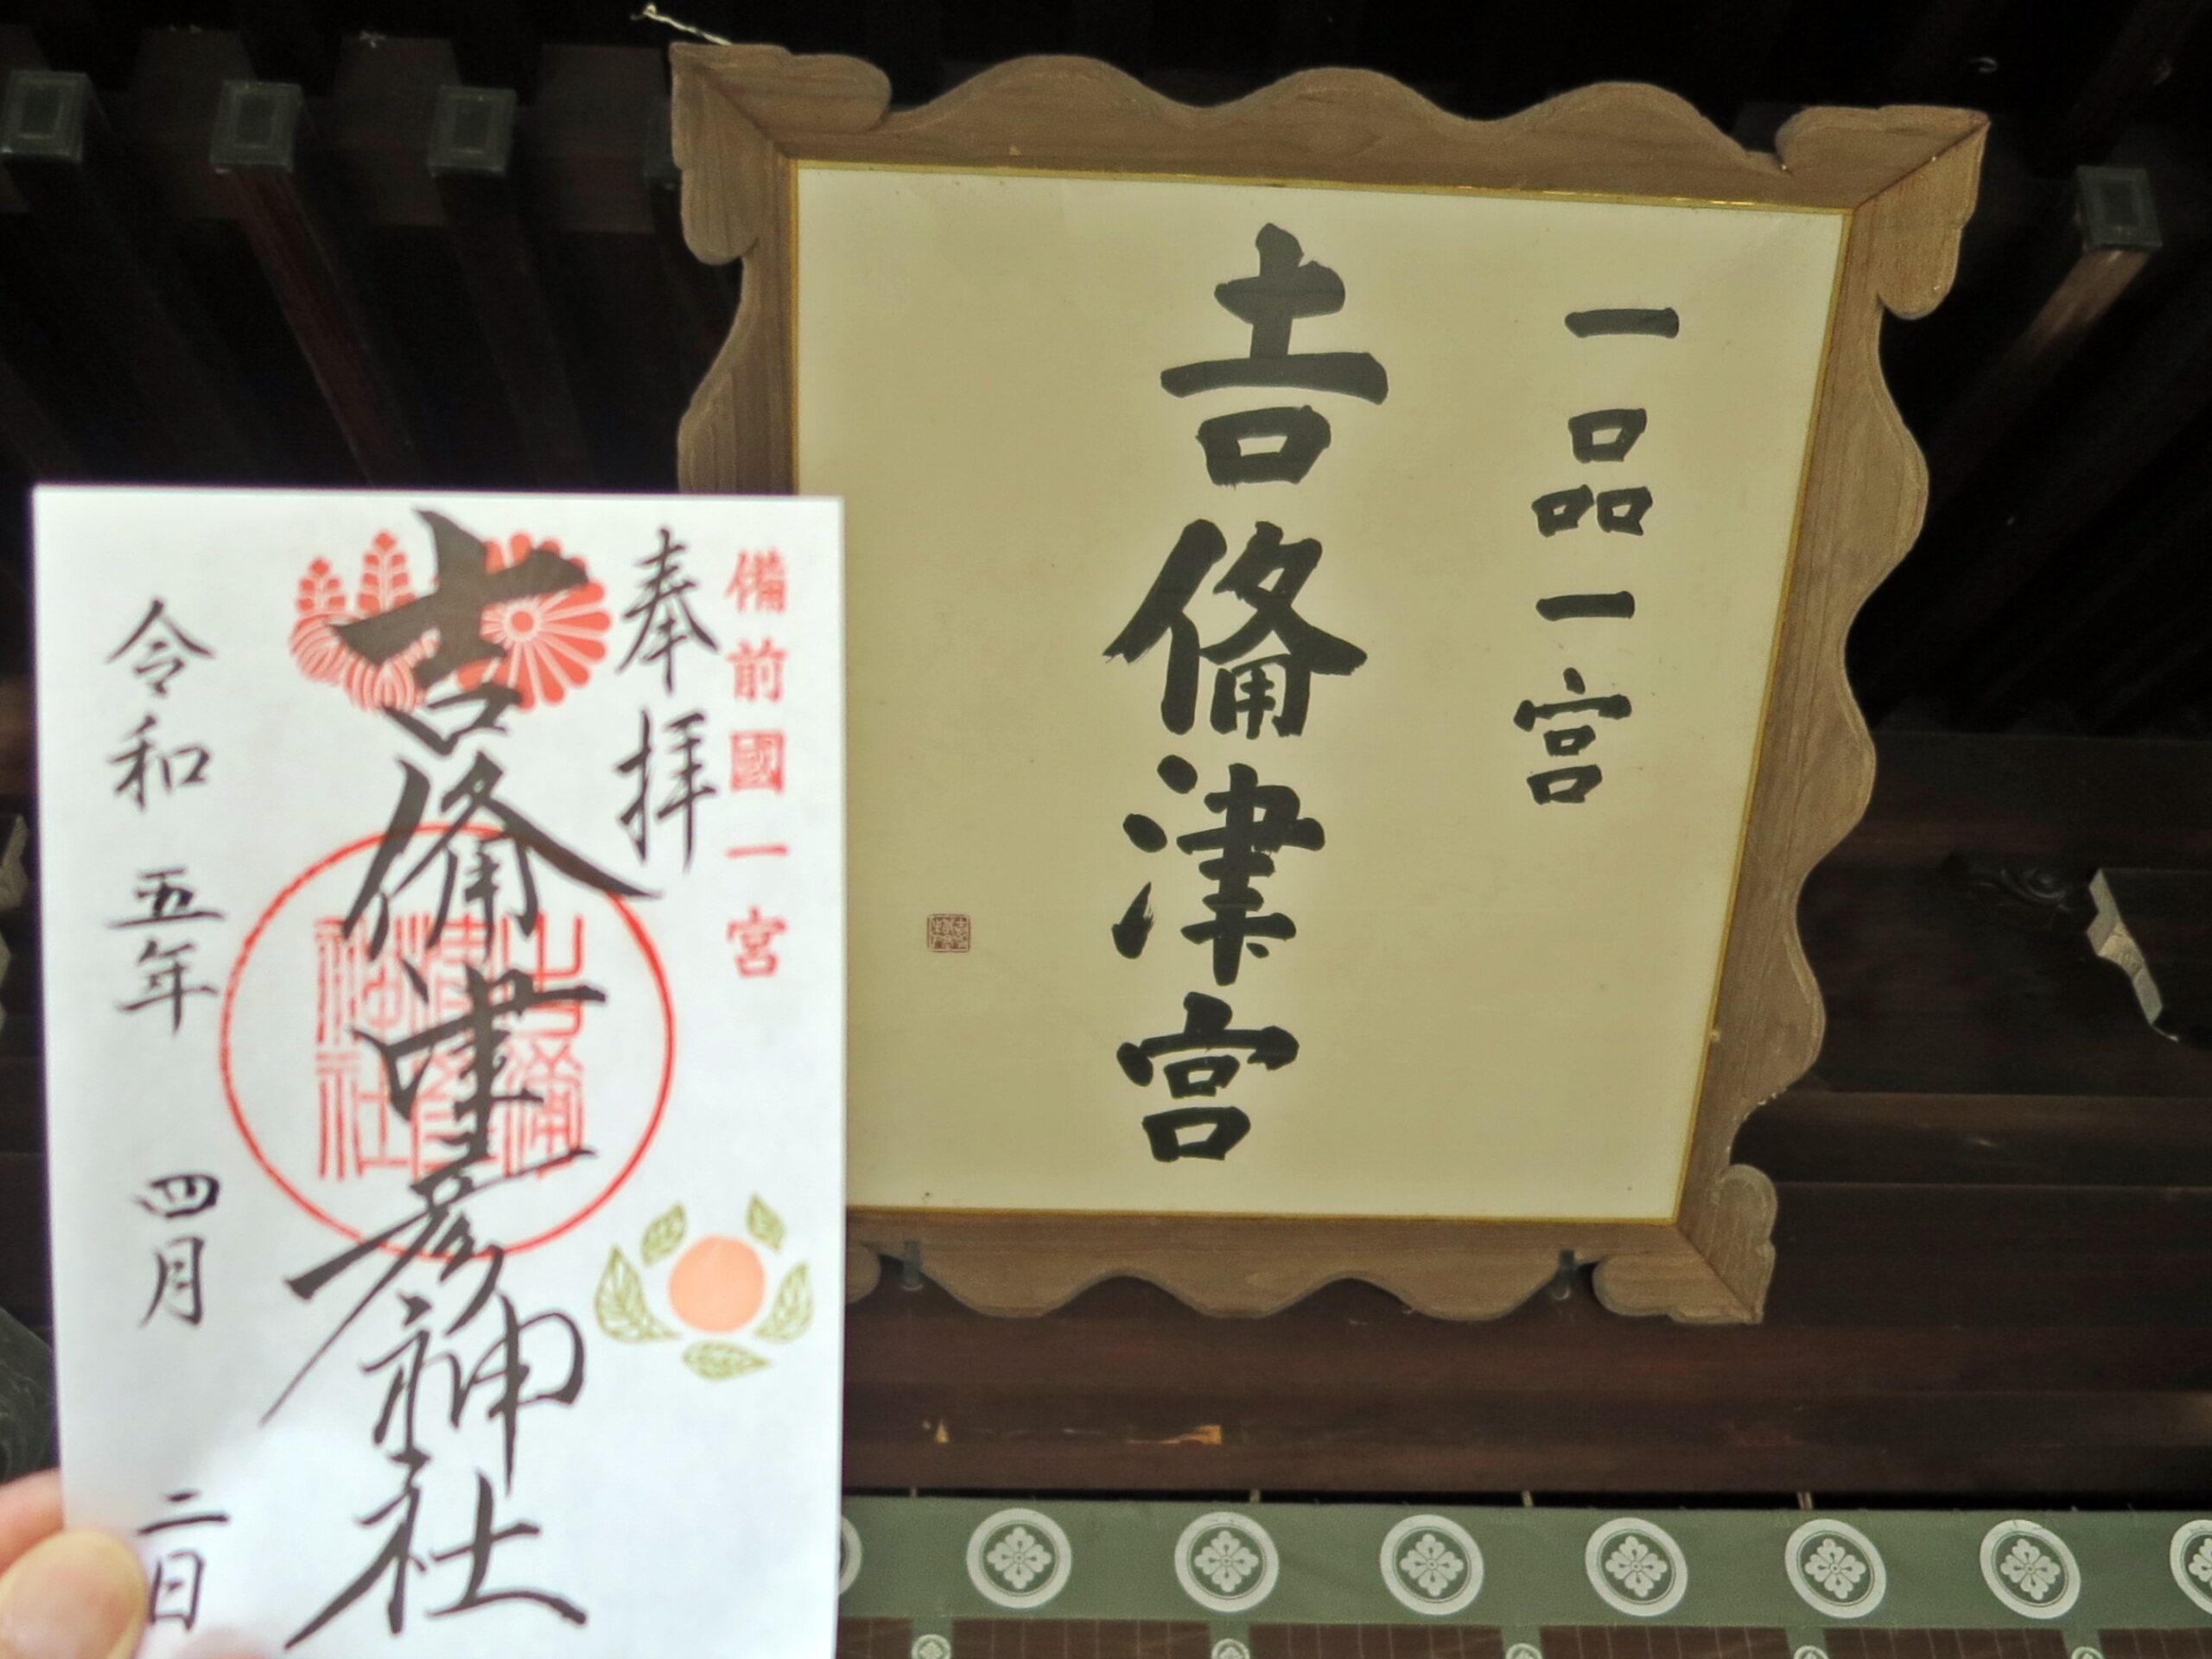 一品一宮
吉備津宮
備前國一宮
奉拝
吉備津彦神社
令和五年四月二日